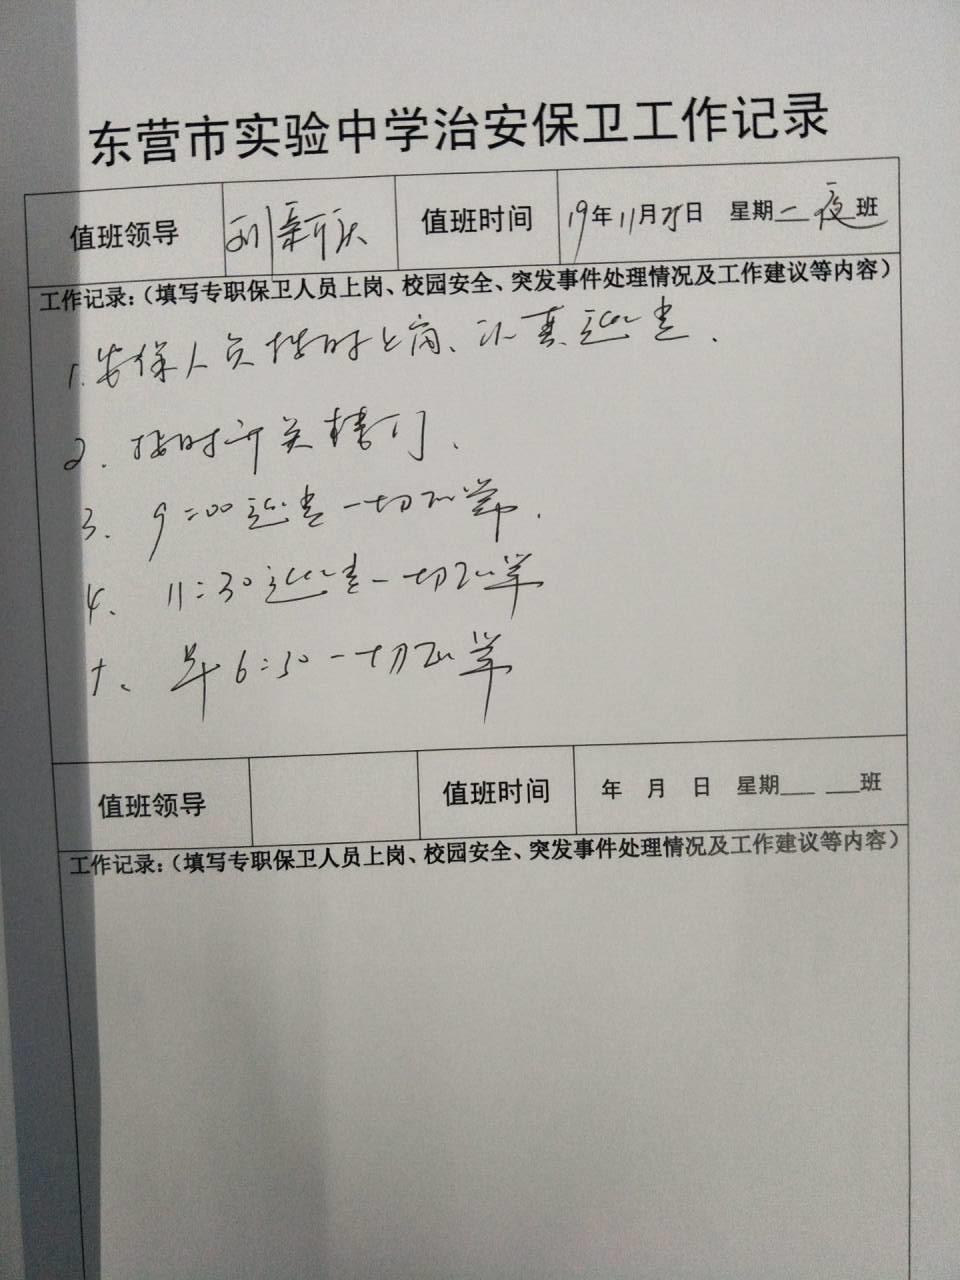 东营市实验中学治安保卫工作记录
值班领导 刘新庆 值班时间 19年11月25日 星期二夜班
工作记录：（填写专职保卫人员上岗、校园安全、突发事件处理情况及工作建议等内容）
1.安保人员按时上岗、认真巡查.
2.按时开关楼门.
3.9:00巡查一切正常.
4、11:30巡查一切正常
早6:30一切正常
值班领导 值班时间 年 月 日 星期___ ___班
工作记录：（填写专职保卫人员上岗、校园安全、突发事件处理情况及工作建议等内容）